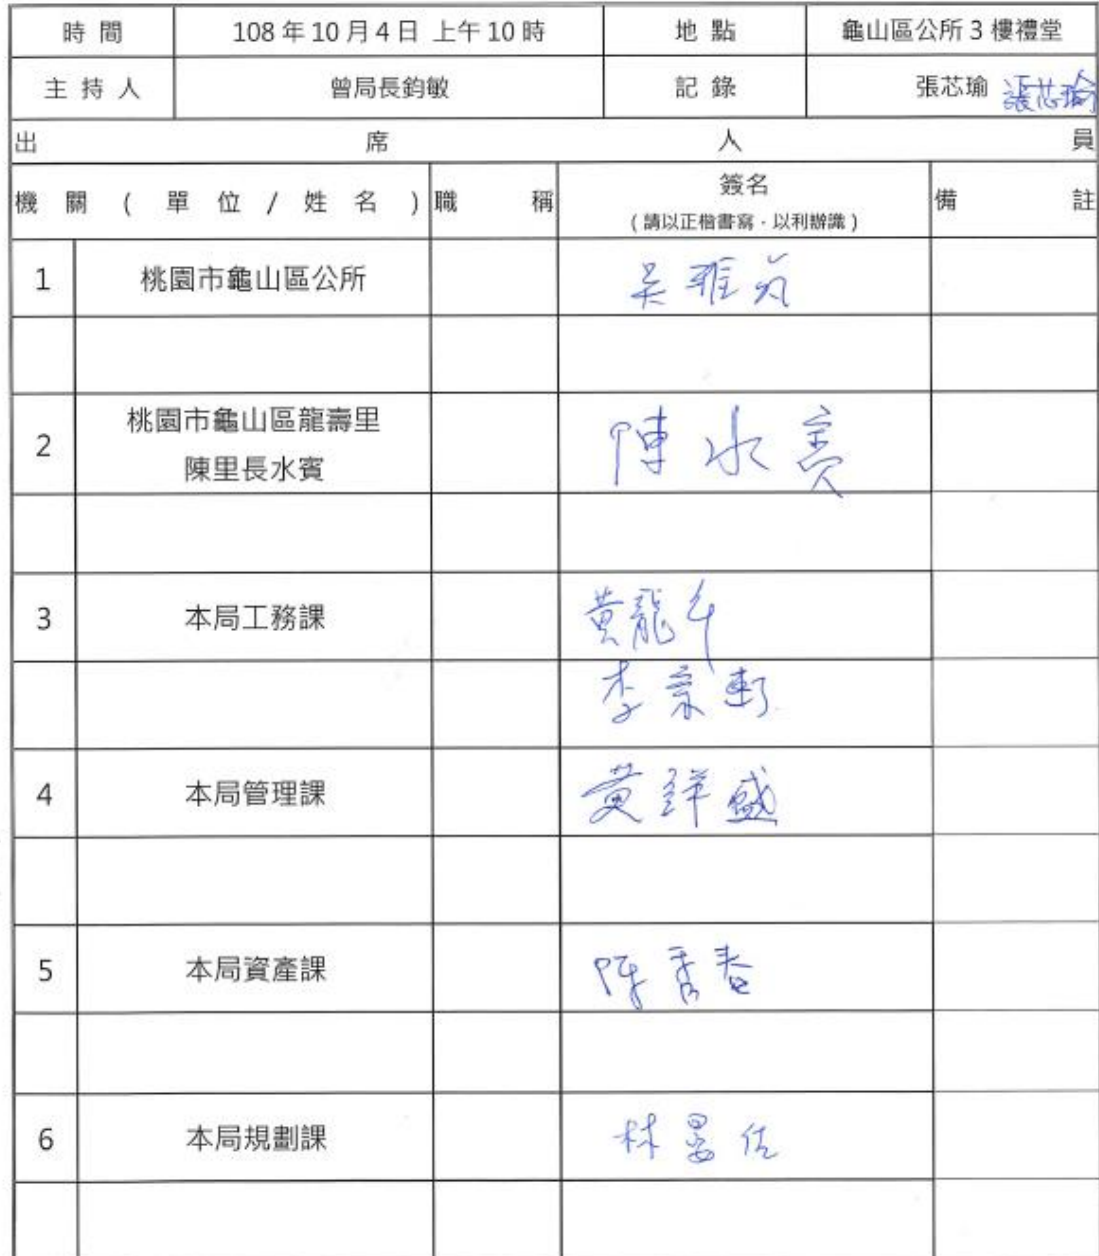 時間 108年10月4日 上午10時 地點 龜山區公所3樓禮堂
主持人 曾局長鈞敏 記錄 張芯瑜 張芯瑜
出席人員
機關(單位/姓名) 職稱 簽名 備註
(請以正楷書寫,以利辦識)
1 桃園市龜山區公所 吳雅
2 桃園市龜山區龍壽里 陳水賓
陳里長水賓
3 本局工務課 黃龍
李
4 本局管理課 黃詳盛
5 本局資產課 陳秀春
6 本局規劃課 林晏佐